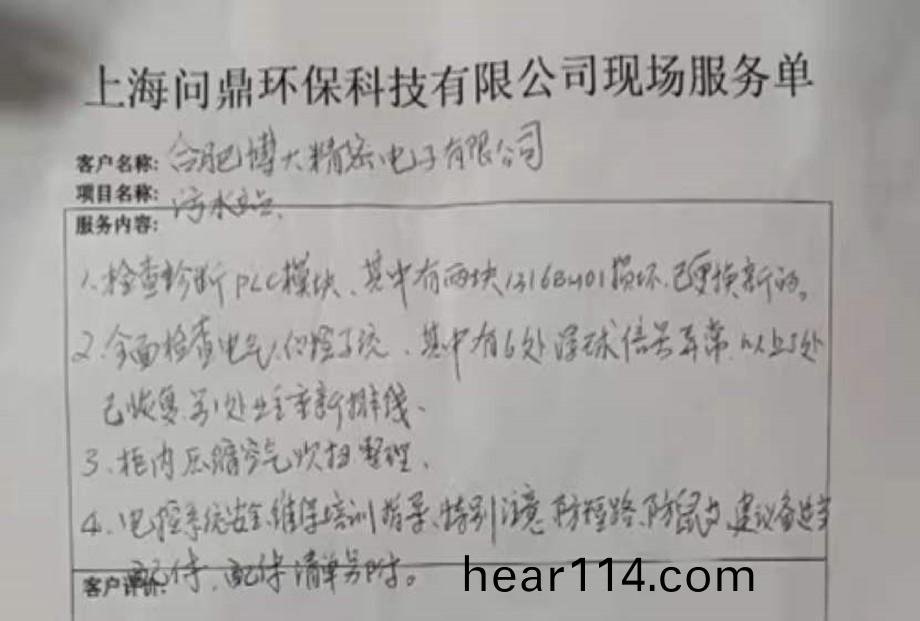 上海问鼎环保科技有限公司现场服务单
客户名称: 合肥博大精密电子有限公司
项目名称: 污水站
服务内容:
1、检查诊断PLC模块、其中有两块损坏、已更换新的。
2、全面检查电气、仪控系统、其中有6处浮球信号异常、以上5处
已恢复、另1处业主重新排线、
3、柜内压缩空气吹扫整理、
4、电控系统安全、维保培训指导、特别注意防短路、防鼠害、建议备适当
配件、配件清单另附。
客户评价:
hear114.com